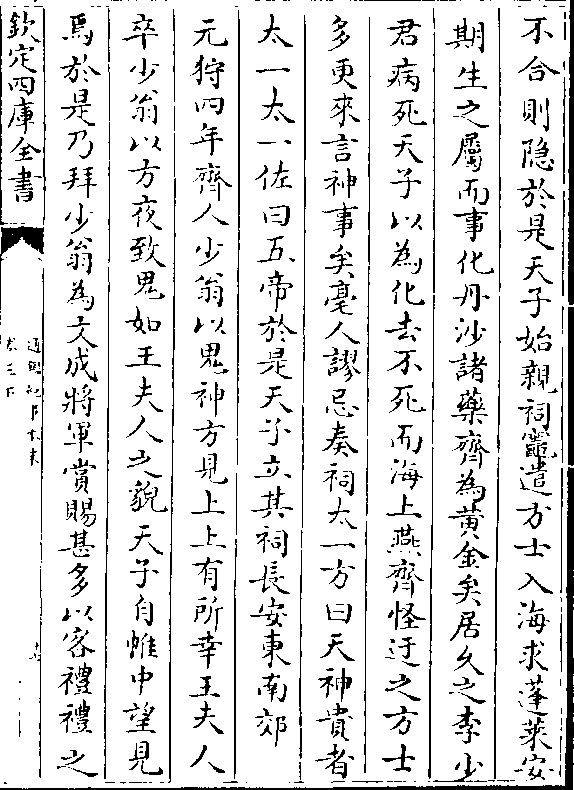 不合則隠於是天子始親祠竈遣方士入海求蓬萊安
期生之屬而事化丹沙諸藥齊為黄金矣居久之李少
君病死天子以為化去不死而海上燕齊怪迂之方士
多更來言神事矣亳人謬忌奏祠太一方曰天神貴者
太一太一佐曰五帝於是天子立其祠長安東南郊
元狩四年齊人少翁以鬼神方見上上有所幸王夫人
卒少翁以方夜致鬼如王夫人之貌天子自帷中望見
焉於是乃拜少翁為文成將軍賞賜甚多以客禮禮之
欽定四庫全書
通鑑紀事本末
卷三下